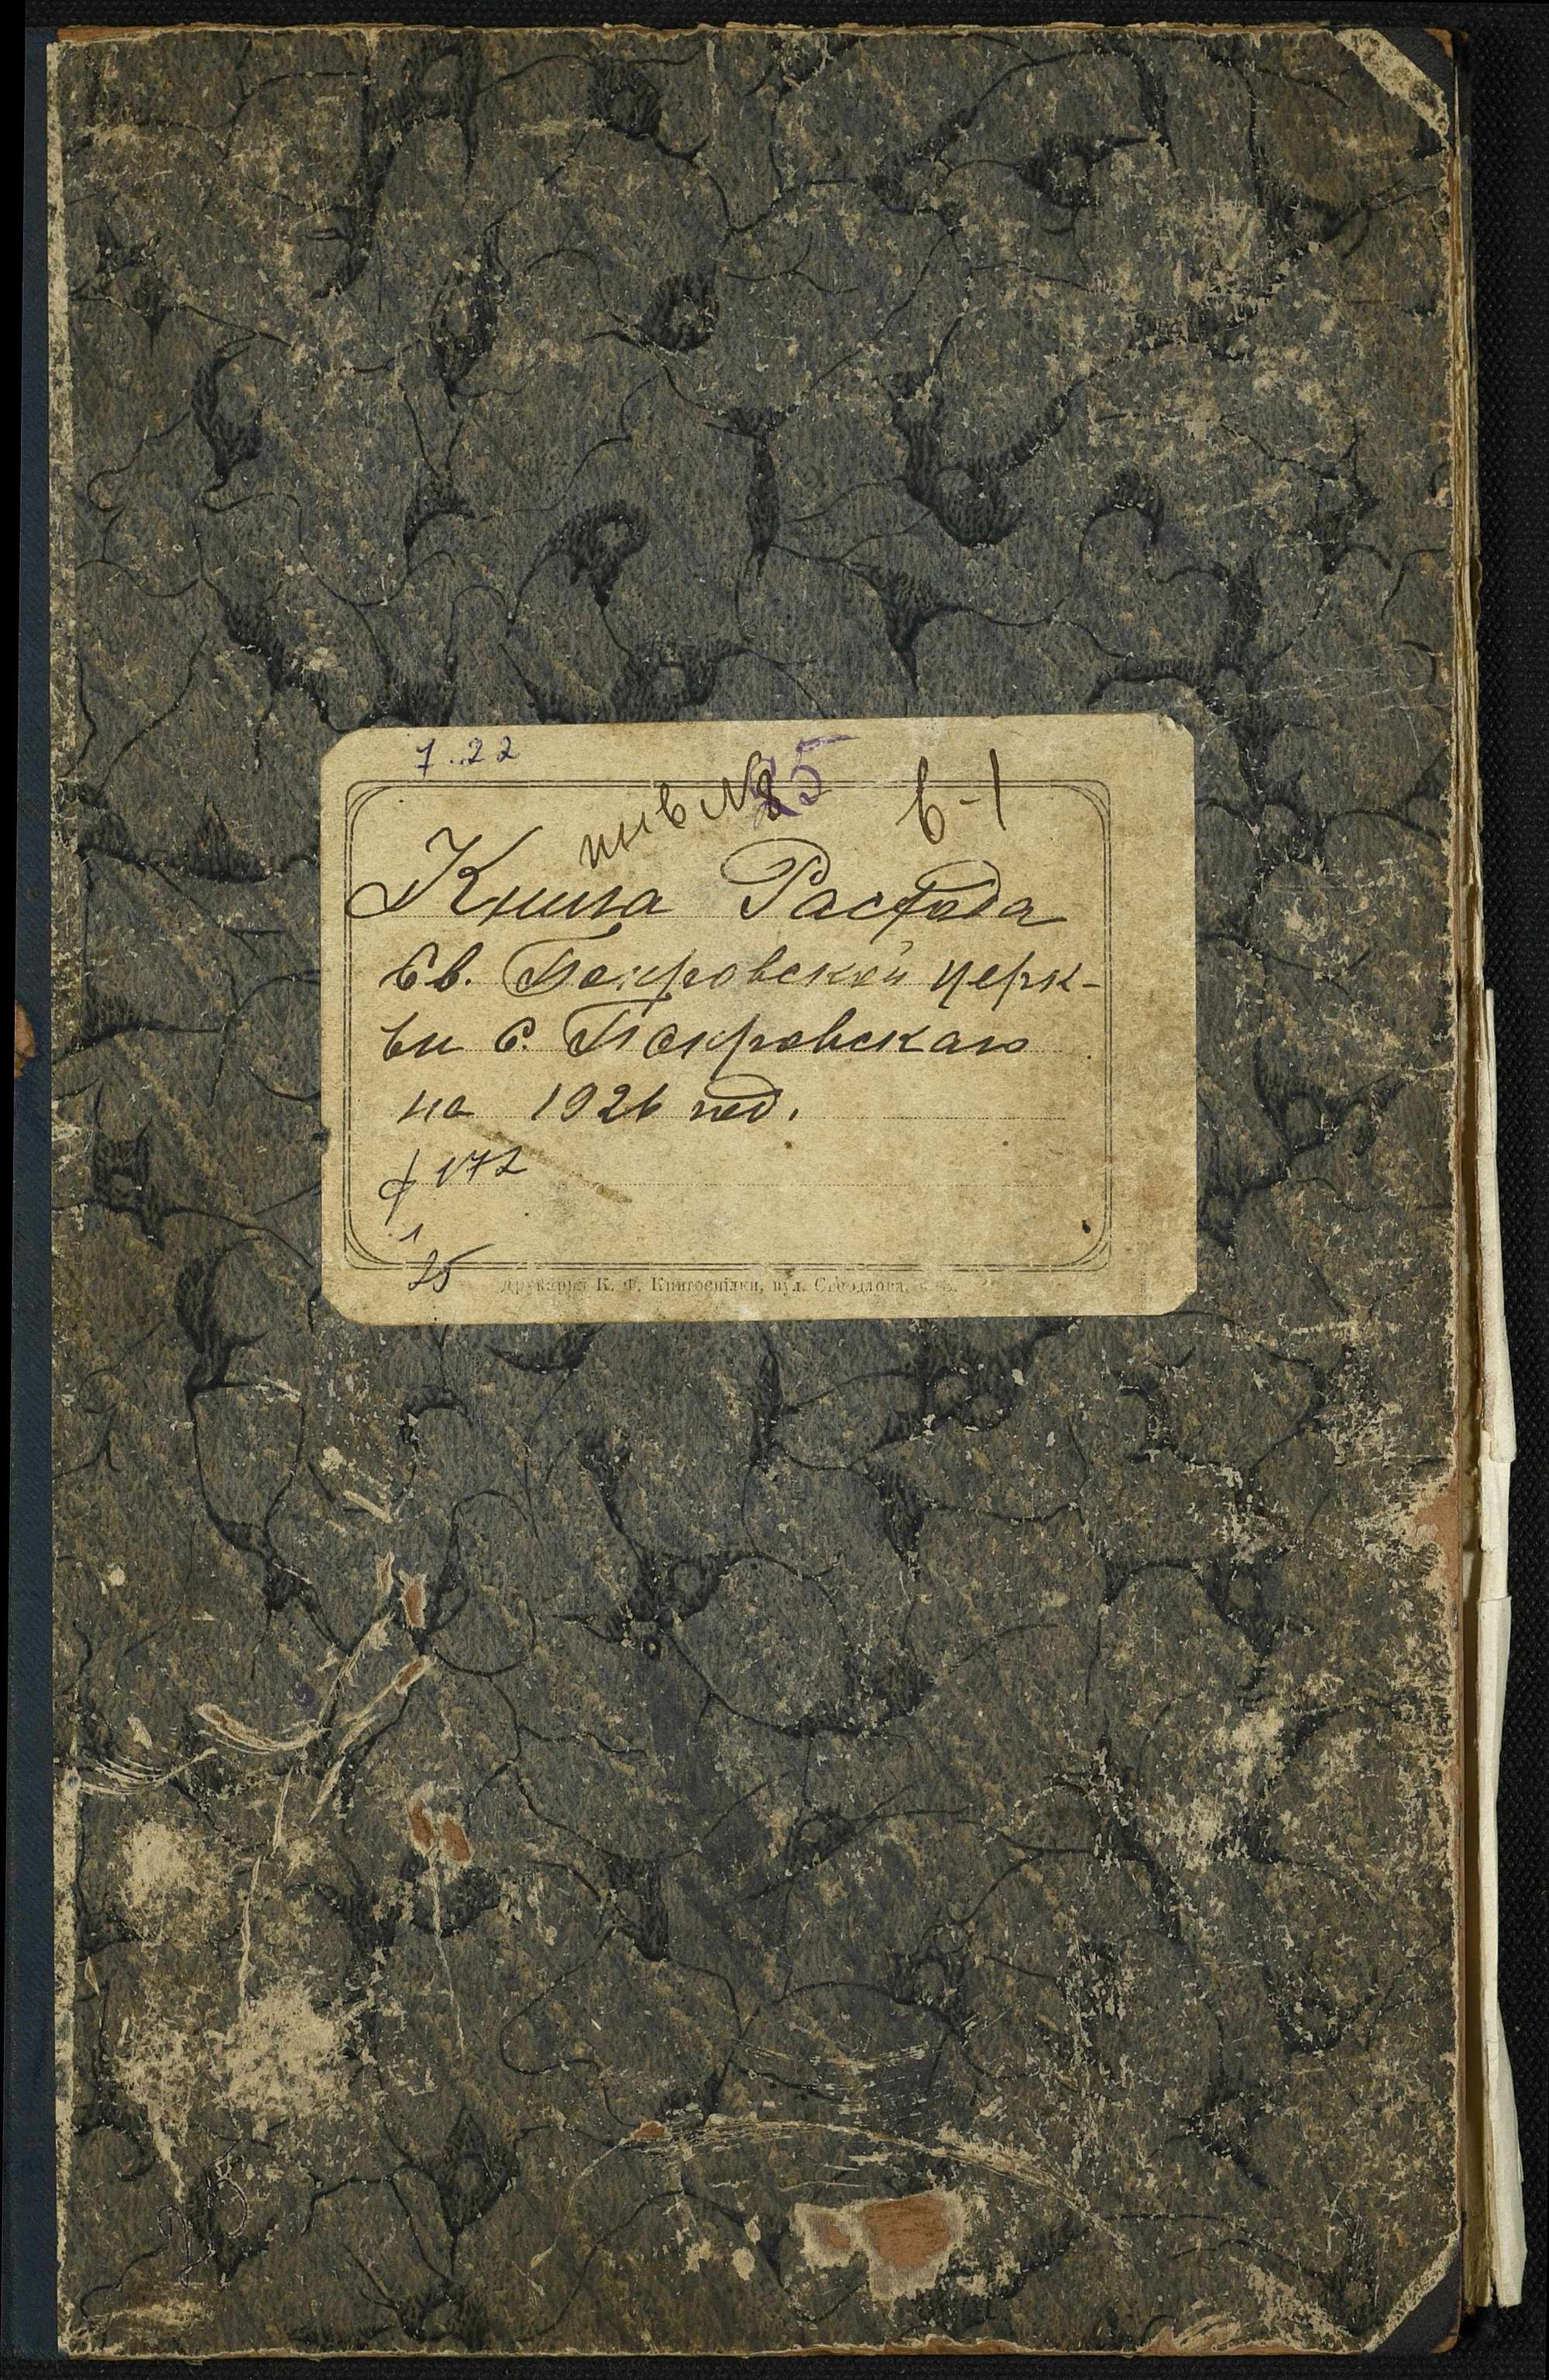 7.22
инв № 25
в-1
Книга Расхода
Св. Покровской церк-
ви с. Покровскаго
на 1926 год.
ф 172
1
25
Друкарня К. Ф. Книгоспілки, вул.